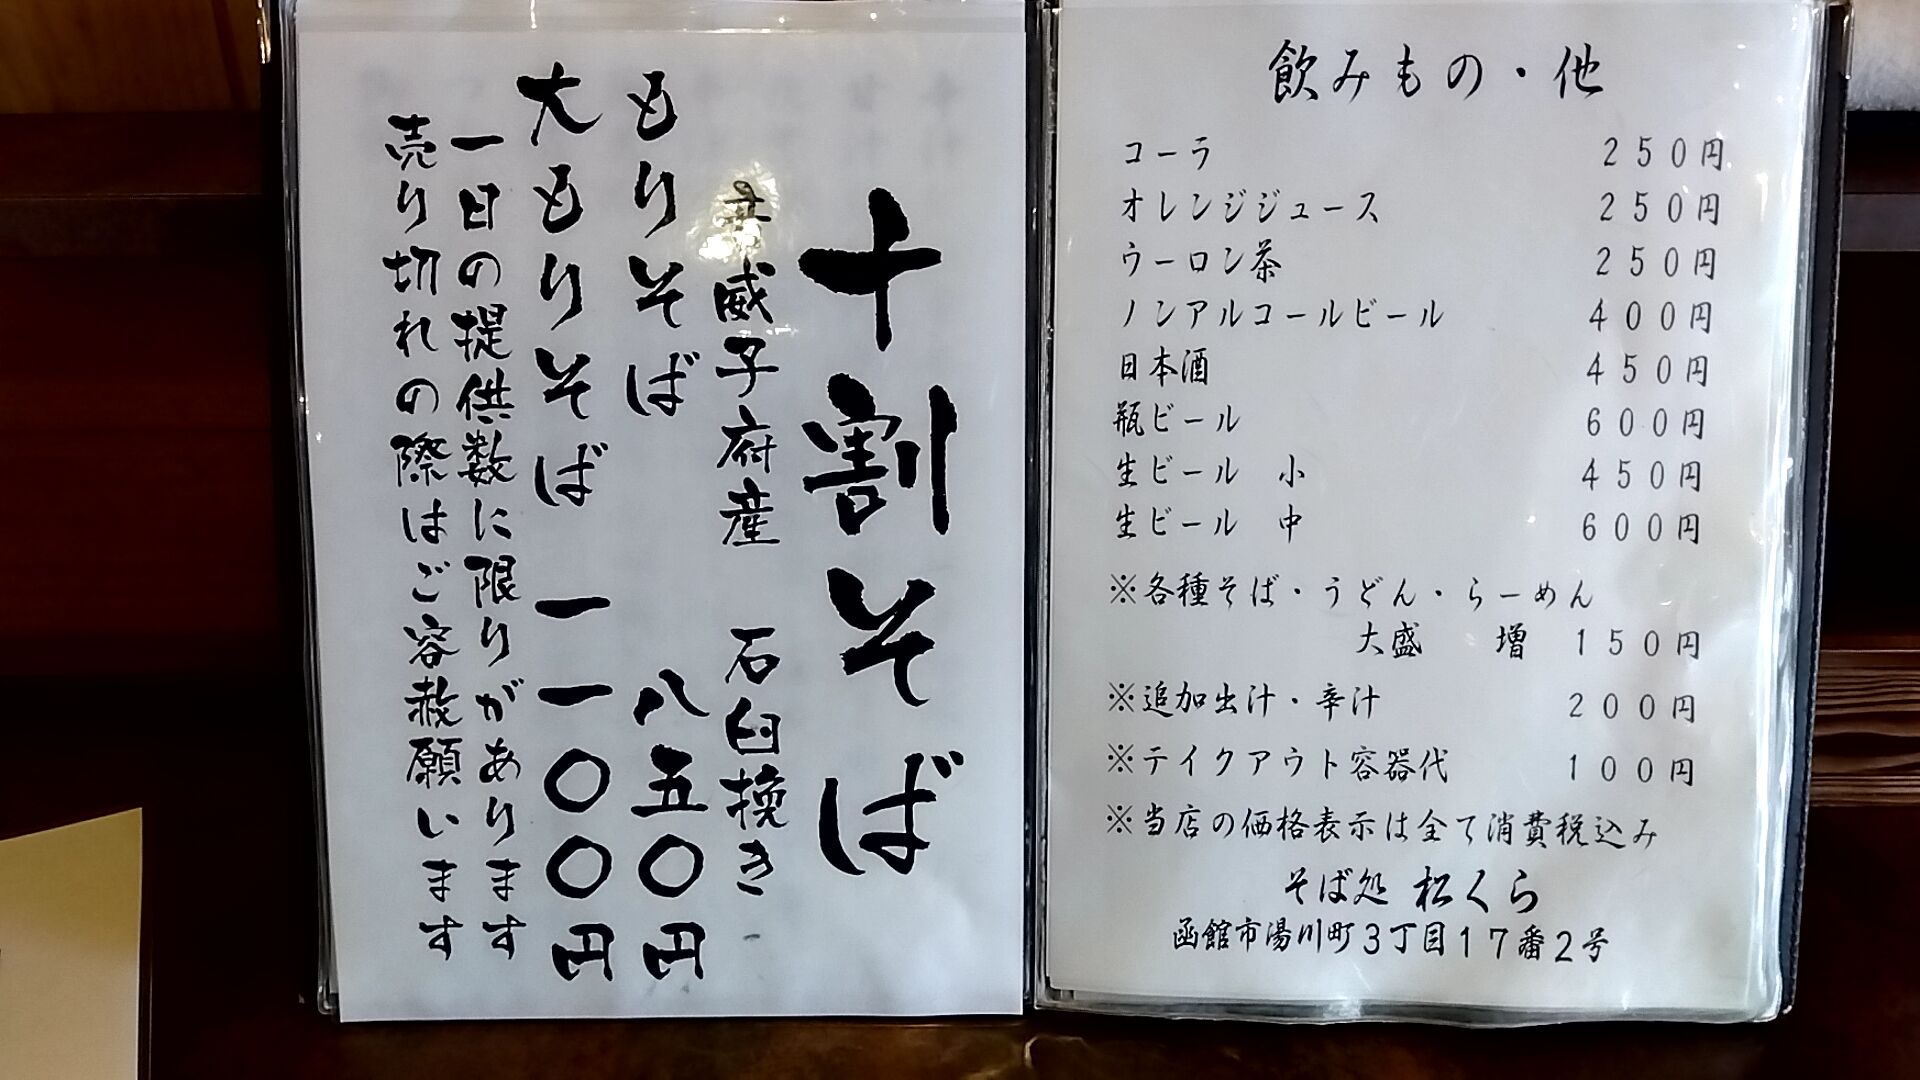 十割そば
音威子府産　石臼挽き
もりそば　八五〇円
大もりそば　一一〇〇円
一日の提供数に限りがあります
売り切れの際はご容赦願います
飲みもの・他
コーラ　250円
オレンジジュース　250円
ウーロン茶　250円
ノンアルコールビール　400円
日本酒　450円
瓶ビール　600円
生ビール　小　450円
生ビール　中　600円
※各種そば・うどん・らーめん
大盛　増　150円
※追加出汁・辛汁　200円
※テイクアウト容器代　100円
※当店の価格表示は全て消費税込み
そば処 松くら
函館市湯川町3丁目17番2号